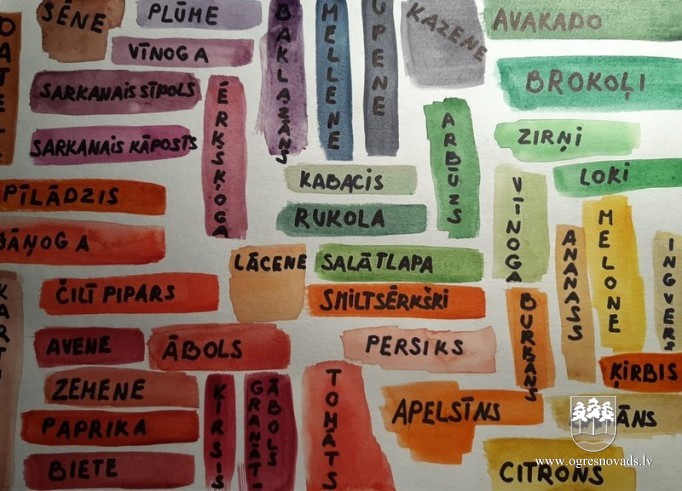 SĒNE
PLŪME
VĪNOGA
SARKANAIS SĪPOLS
SARKANAIS KĀPOSTS
ĒRKŠĶOGA
BAKLAŽĀNS
MELLENE
UPENE
KAZENE
AVAKADO
BROKOĻI
ZIRŅI
LOKI
ARBŪZS
KABACIS
RUKOLA
VĪNOGA
PĪLĀDZIS
LĀCENE
SALĀTLAPA
SMILTSĒRKŠĶI
ČILĪ PIPARS
ANANASS
MELONE
INGVERS
BURKĀNS
AVENE
ĀBOLS
PERSIKS
ĶIRBIS
ZEMENE
PAPRIKA
BIETE
ĶIRSIS
GRANĀT-
ĀBOLS
TOMĀTS
APELSĪNS
CITRONS
www.ogresnovads.lv